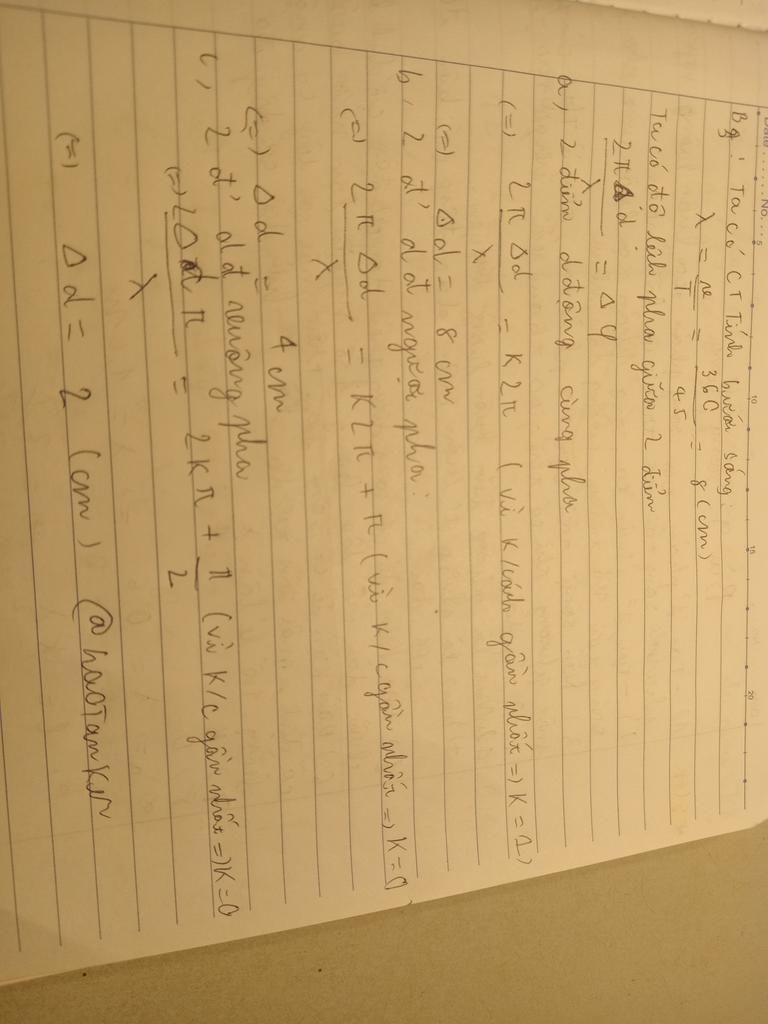 Date ....... No. ....
5 10 15 20
Bg : Ta có CT Tính bước sóng:
λ = v/T = 360/45 = 8 (cm)
Ta có độ lệch pha giữa 2 điểm
2πΔd/λ = Δφ
a, 2 điểm d động cùng pha
(=) 2πΔd/λ = K2π (vì K/cách gần nhất =) K = 1)
(=) Δd = 8 cm
b, 2 đ' dđ ngược pha:
(=) 2πΔd/λ = K2π + π (vì K/c gần nhất =) K=0
(=) Δd = 4 cm
c, 2 đ' dđ vuông pha
(=) 2Δdπ/λ = 2Kπ + π/2 (vì K/c gần nhất =) K=0
(=) Δd = 2 (cm) @haoTanKer